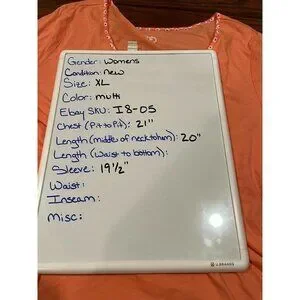 Gender: Womens
Condition: New
Size: XL
Color: multi
Ebay SKU: I8-D5
Chest (Pit to Pit): 21"
Length (middle of neck to hem): 20"
Length (Waist to bottom):
Sleeve: 19 1/2"
Waist:
Inseam:
Misc:
U BRANDS